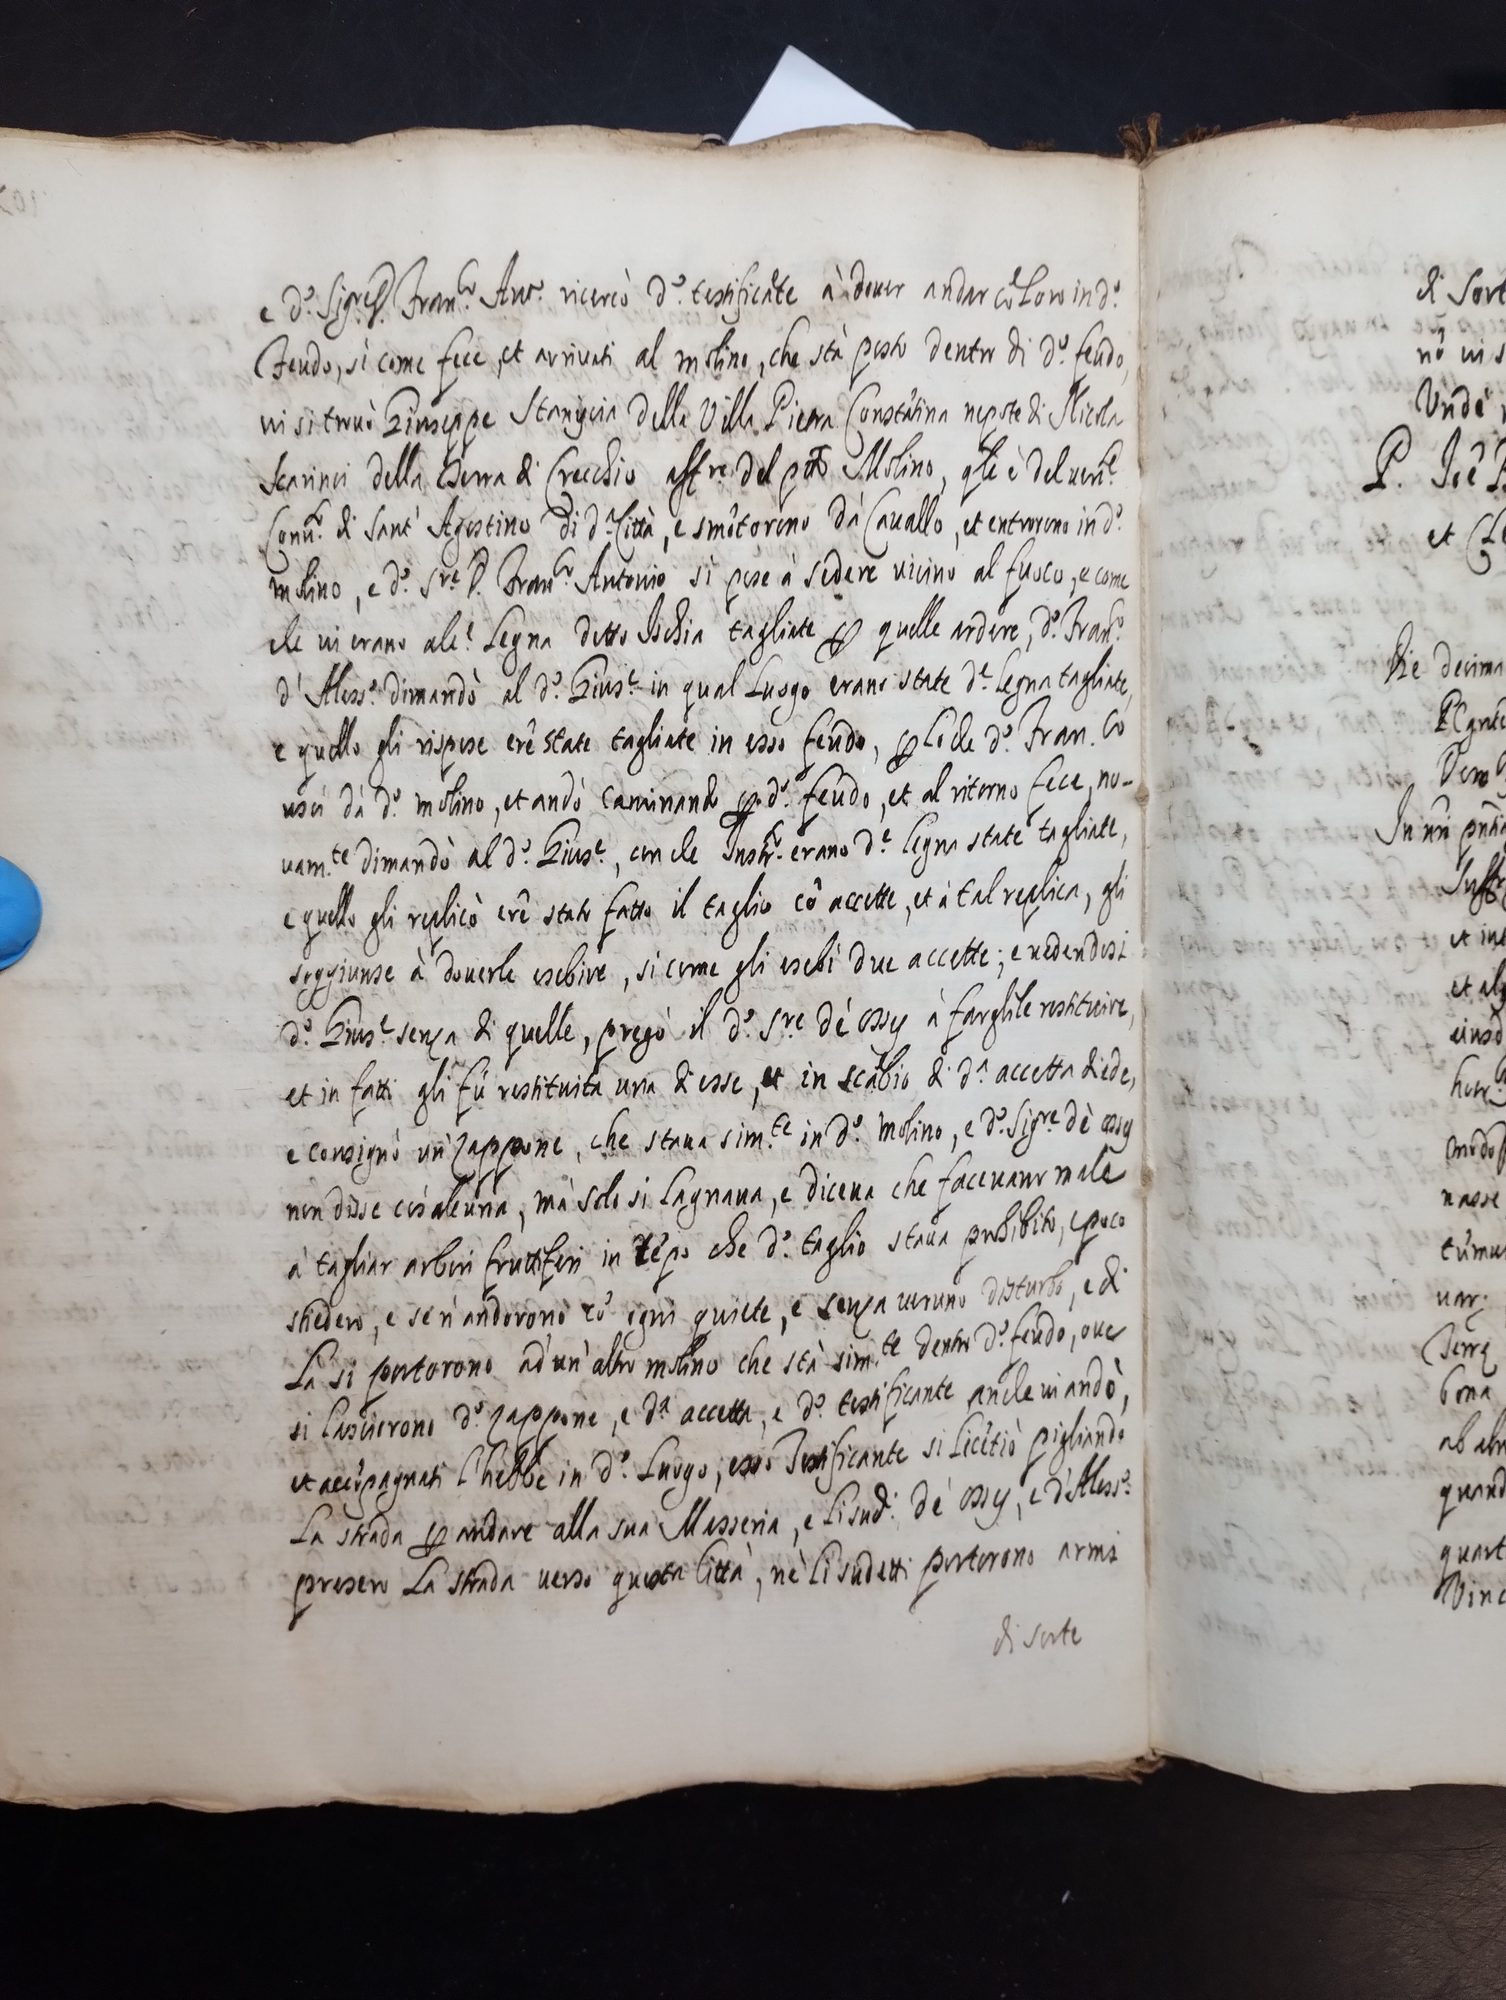 e d.º Sig.re D. Fran.co Ant.º ricercò d.º testificãte à dover andar cõ Loro in d.º
Feudo, si come fece, et arrivati al molino, che stà posto dentro di d.º feudo,
vi si trovò Giuseppe Staniscia della Villa Pietra Constãtina nepote di Nicola
Scarinci della Terra di Crecchio aff.re del Molino, qle è del ven.e
Conv.to di Sant' Agostino di d.ª Città, e smõtorono dà Cavallo, et entrorono in d.º
molino, e d.º S.re D. Fran.co Antonio si pose à sedere vicino al fuoco, e come
che vi erano alc.e Legna detto Ischia tagliate p quelle ardere, d.º Fran.co
d' Aless.º dimandò al d.º Gius.e in qual Luogo erano state d.e Legna tagliate,
e quello gli rispose erẽ state tagliate in esso feudo, p lo che d.º Fran.co
uscì dà d.º molino, et andò caminando p d.º feudo, et al ritorno fece, no-
vam.te dimandò al d.º Gius.e, con che Instr.º erano d.e legna state tagliate,
e quello gli replicò erẽ stato fatto il taglio cõ accette, et à tal replica, gli
soggiunse à doverle esebire, si come gli esebì due accette; e vedendosi
d.º Gius.e senza di quelle, pregò il d.º S.re dè Ossy à fargliele restituire,
et in fatti gli fù restituita una di esse, et in scãbio di d.ª accetta diede,
e consignò un' zappone, che stava sim.te in d.º molino, e d.º Sig.re dè Ossy
non disse cos' alcuna, mà solo si lagnava, e diceva che facevano male
à tagliar arbori fruttiferi in tẽpo che d.º taglio stava prohibito, e poco
stiedero, e se n' andorono cõ ogni quiete, e senza veruno disturbo, e di
Là si portorono ad' un' altro molino che stà sim.te dentro d.º feudo, ove
si lasciorono d.º zappone, e d.ª accetta, e d.º testificante anche vi andò,
et accõpagnati l' hebbe in d.º Luogo, esso Testificante si licẽtiò pigliando
La strada p andare alla sua Masseria, e li sud.i dè Ossy, e d' Aless.º
presero La strada verso questa Città, nè li sudetti portorono armi
di sorte
di Sort
nõ vi s
Unde
P.
et
Die decima
In
et in
et al
nasse
tumu
bona
quand
quart
Vinc